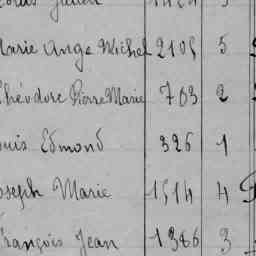 Marie Ange Michel 2105 5
Théodore Pierre Marie 703 2
Louis Edmond 326 1
Joseph Marie 1514 4
François Jean 1386 3